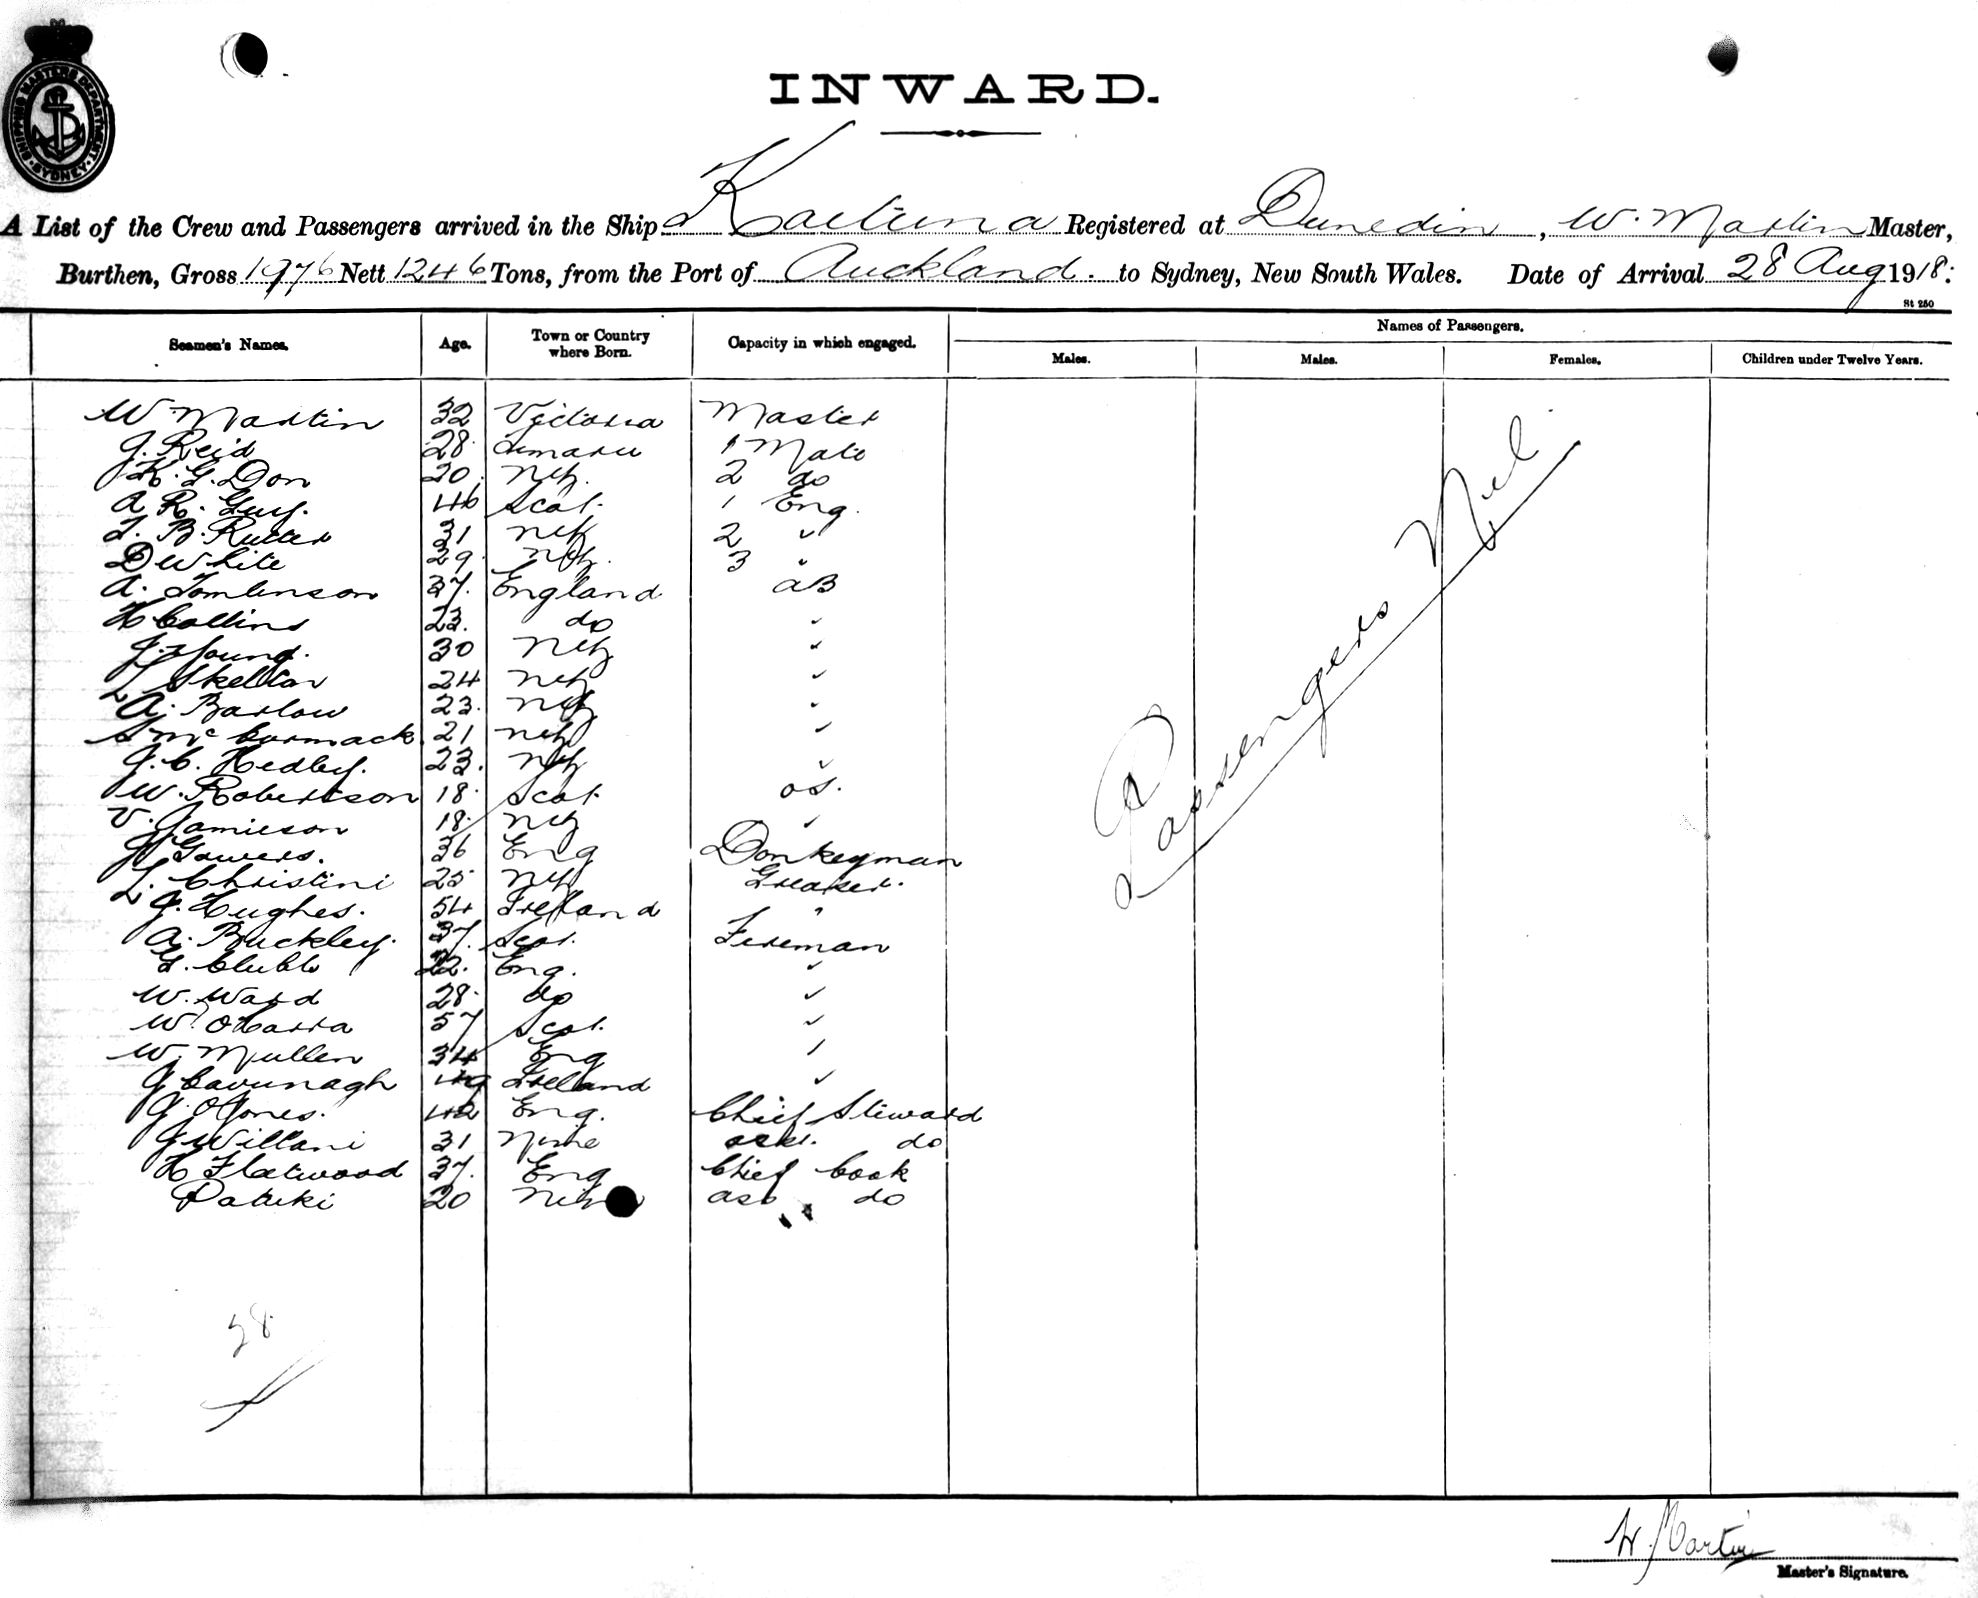 SHIPPING MASTERS DEPARTMENT SYDNEY
INWARD.
A List of the Crew and Passengers arrived in the Ship Kaituna Registered at Dunedin, W. Martin Master,
Burthen, Gross 1976 Nett 1246 Tons, from the Port of Auckland. to Sydney, New South Wales. Date of Arrival 28 Aug 1918.
St 250
Seamen's Names. Age. Town or Country where Born. Capacity in which engaged. Names of Passengers.
Males. Males. Females. Children under Twelve Years.
W Martin 32 Victoria Master
J. Reid 28 Timaru 1 Mate
K. G. Don 20 2 do
A R. Guy. 46 Scot. 1 Eng.
B. Rutter 31 2 "
D White 29 3 "
A. Tomlinson 37. England AB
H Collins 23. do "
J. Young. 30 "
L Skelton 24 "
A. Barlow 23. "
S McCormack 21 "
J. C. Hedley. 23. "
W. Robertson 18 Scot. OS.
V. Jamieson 18 "
J Gowers. 36 Eng Donkeyman
L. Christini 25 Greaser.
J. Hughes. 54 Ireland "
A. Buckley. 37. Scot. Fireman
G. Clubb 22. Eng. "
W. Ward 28 do "
W. OHarra 57 Scot. "
W. Mullen 34 Eng "
J Cavunagh 49 Ireland "
J. O Jones. 42 Eng. Chief Steward
J Willani 31 Niue asst. do
H Fleetwood 37. Eng Chief Cook
Patuki 20 ass do
Passengers Nil.
28
W. Martin
Master's Signature.